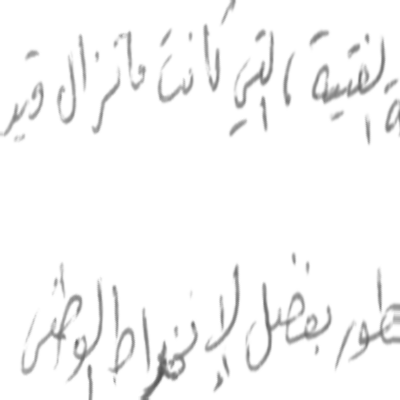 الفتية، التي كانت ما تزال قيد
بفضل الإنخراط الوطني